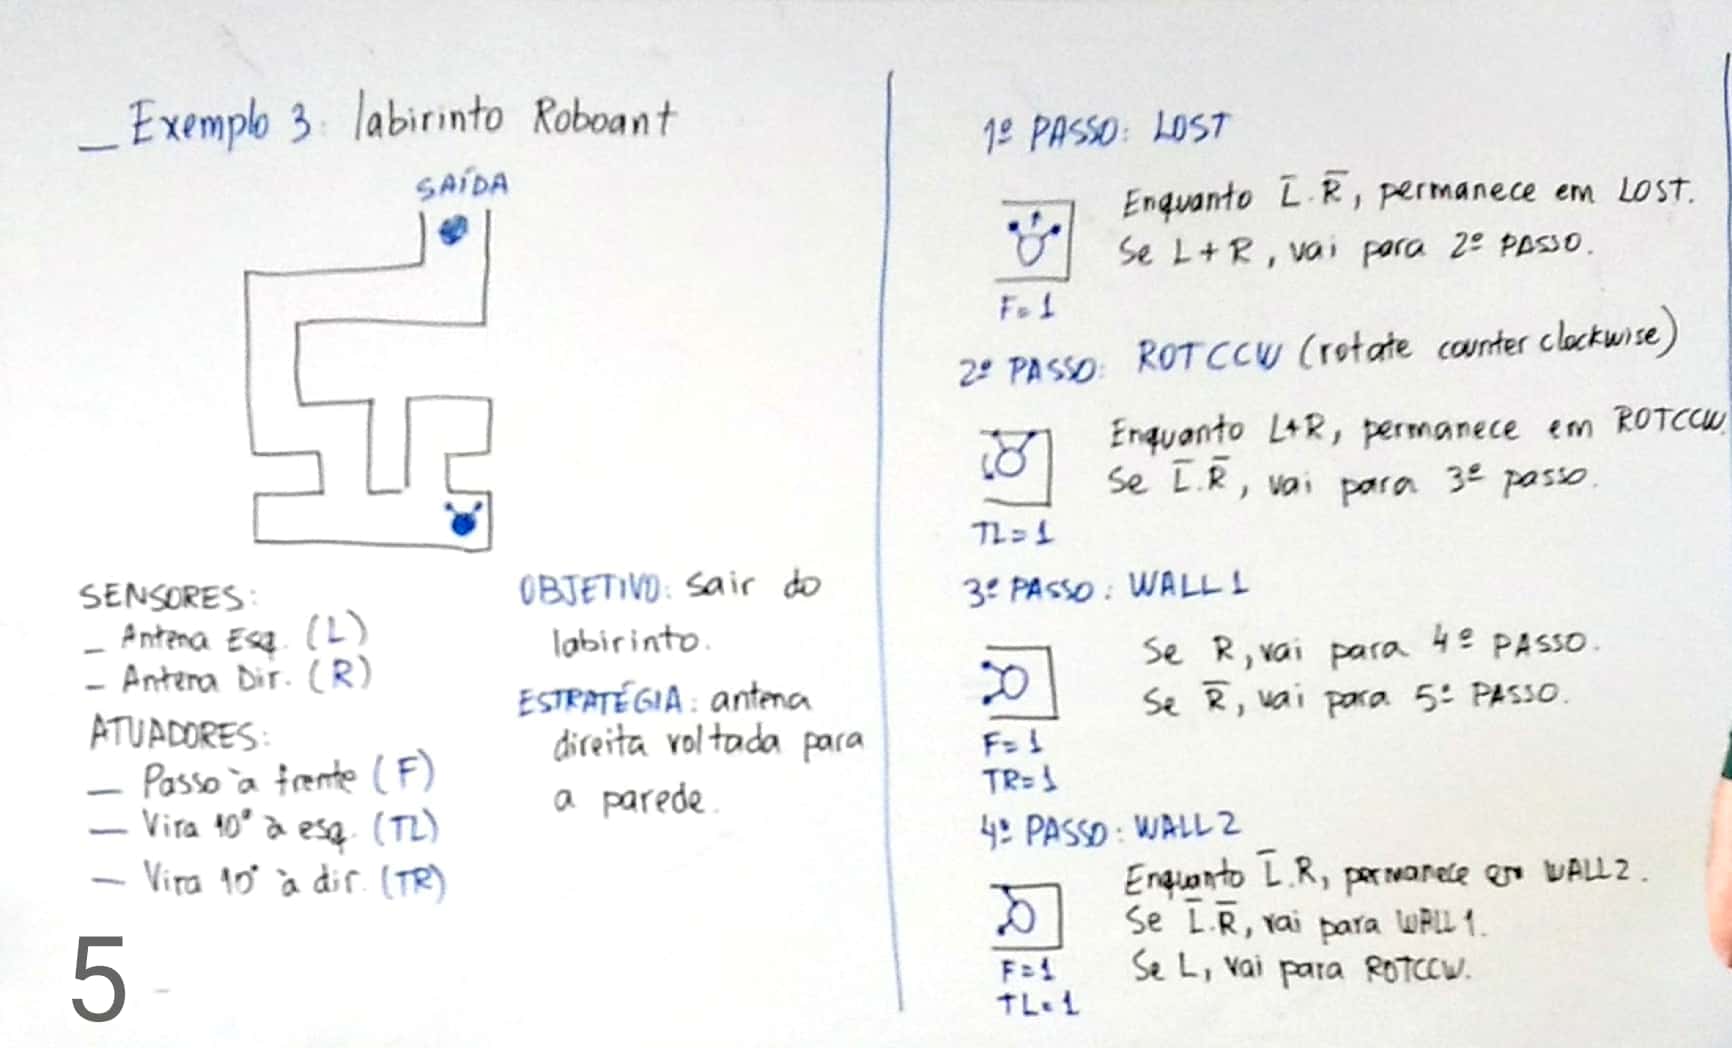 _ Exemplo 3: labirinto Roboant
SAÍDA
SENSORES:
_ Antena Esq. (L)
- Antena Dir. (R)
ATUADORES:
— Passo à frente (F)
— Vira 10° à esq. (TL)
— Vira 10° à dir. (TR)
5
OBJETIVO: sair do
labirinto.
ESTRATÉGIA: antena
direita voltada para
a parede.
1º PASSO: LOST
Enquanto L̅.R̅, permanece em LOST.
Se L+R, vai para 2º PASSO.
F=1
2º PASSO: ROTCCW (rotate counter clockwise)
Enquanto L+R, permanece em ROTCCW.
Se L̅.R̅, vai para 3º passo.
TL=1
3º PASSO: WALL1
Se R, vai para 4º PASSO.
Se R̅, vai para 5º PASSO.
F=1
TR=1
4º PASSO: WALL2
Enquanto L̅.R, permanece em WALL2.
Se L̅.R̅, vai para WALL1.
Se L, vai para ROTCCW.
F=1
TL=1